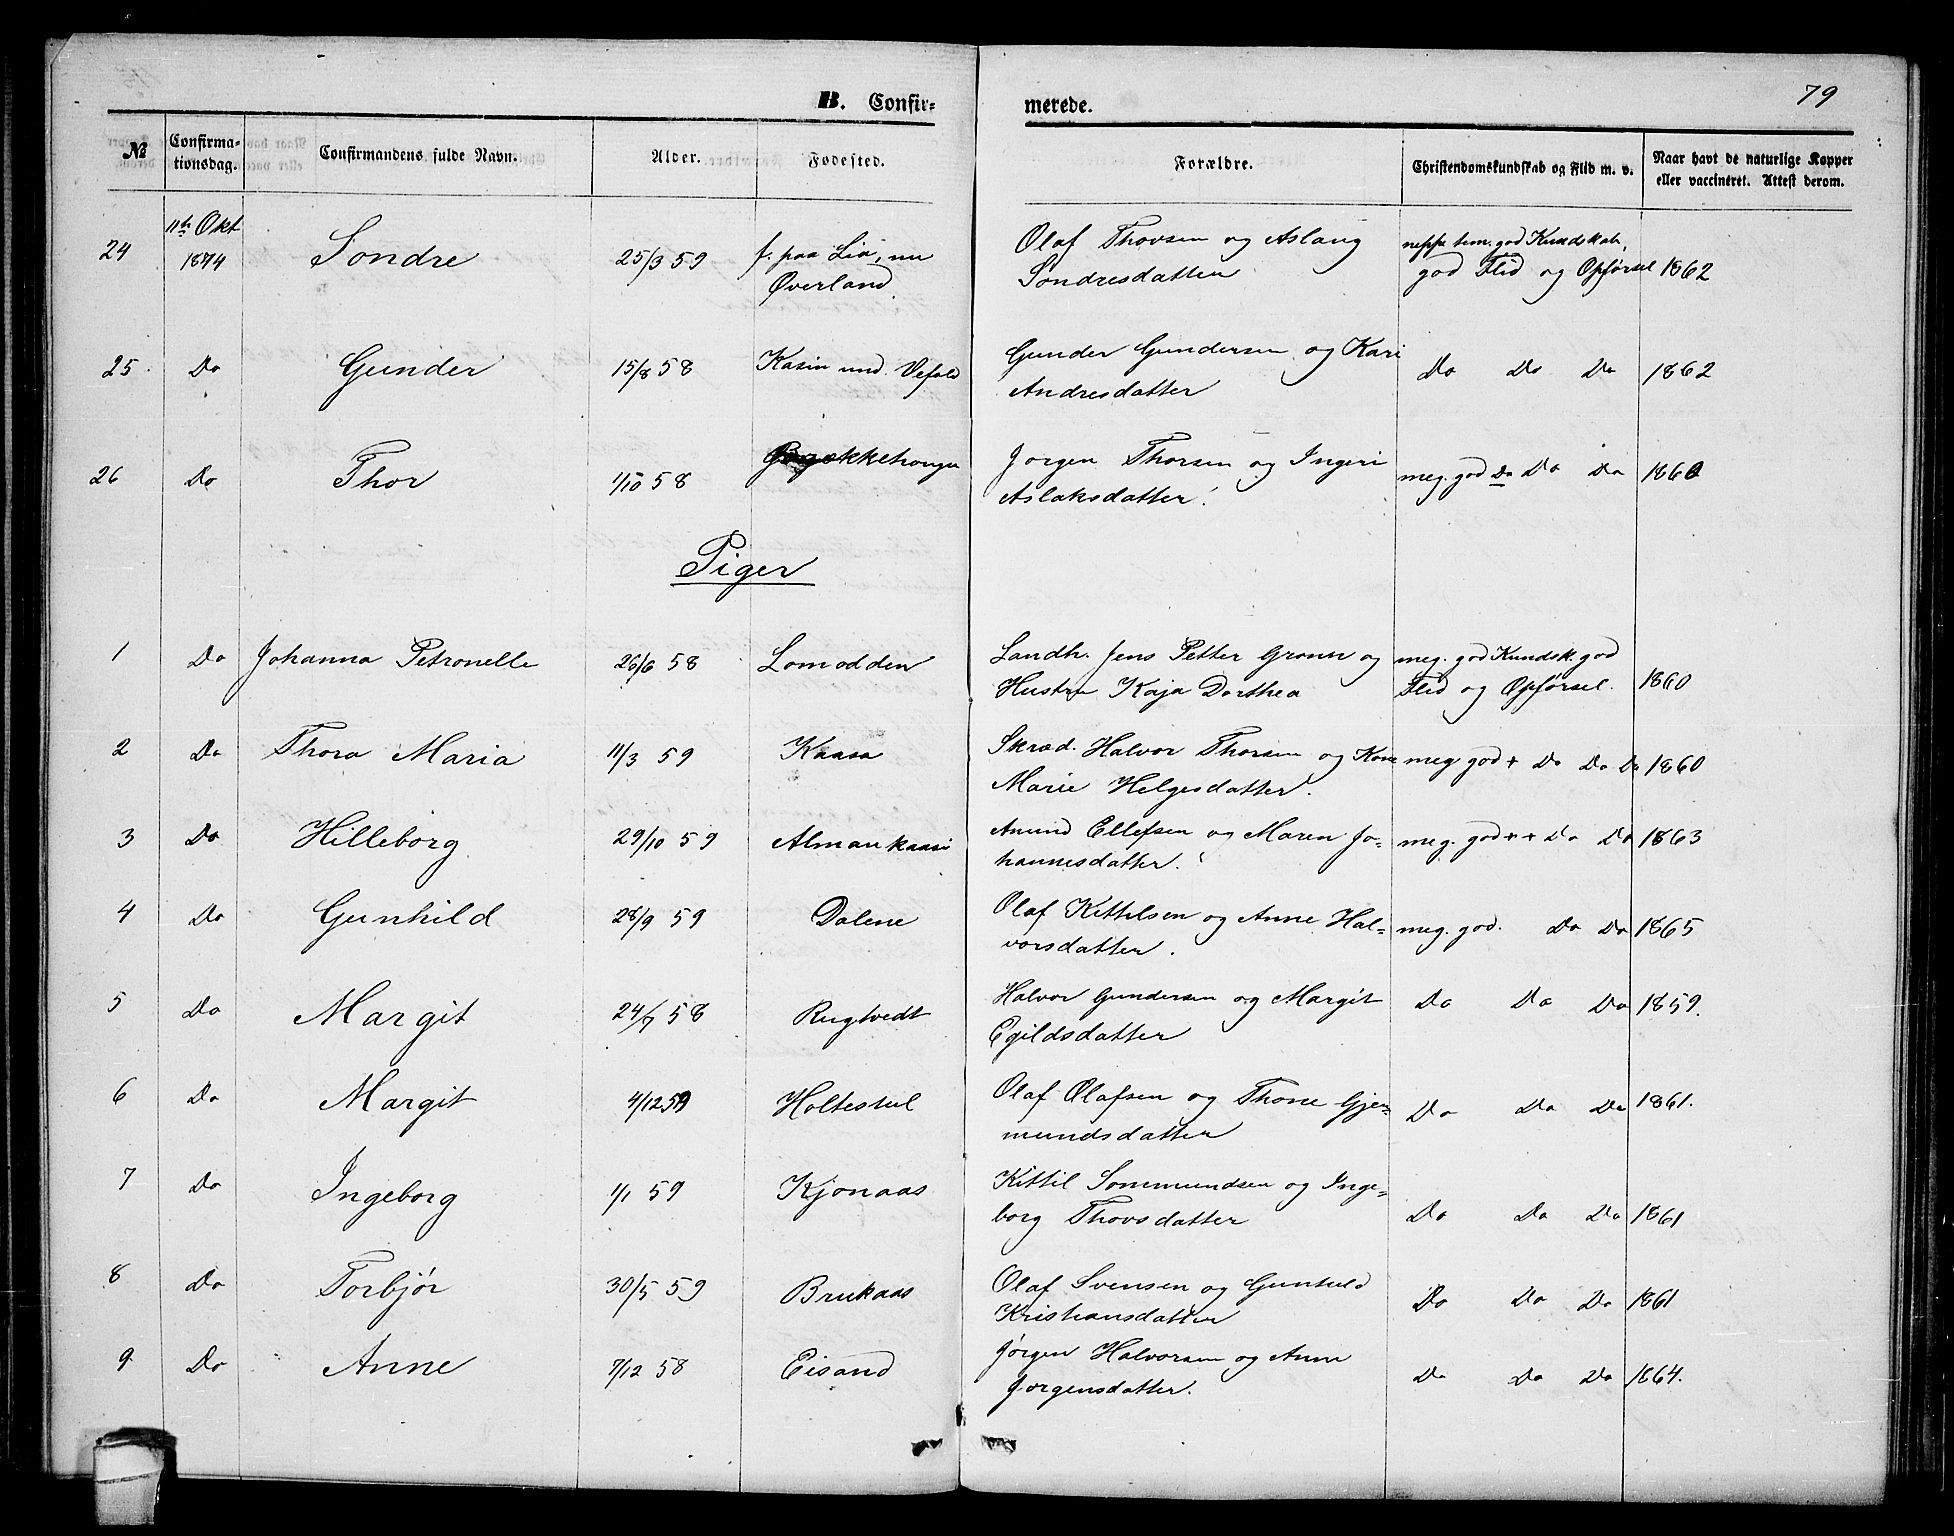 B. Confir=
merede.
79
№
Confirma-
tionsdag.
Confirmandens fulde Navn.
Alder.
Fødested.
Forældre.
Christendomskundskab og Flid m. v.
Naar havt de naturlige Kopper
eller vaccineret. Attest derom.
24 11te Okt 1874 Sondre 25/3 59 f. paa Lia, nu
Øverland
Olaf Thovsen og Aslaug
Sondresdatter
neppe tem. god Kundskab,
god Flid og Opførsel 1862
25. Do Gunder 15/8 58 Kasin und. Vefald
Gunder Gundersen og Kari
Andresdatter
Do Do Do 1862
26 Do Thor 1/10 58
Jorgen Thorsen og Ingeri
Aslaksdatter.
meg. god Do Do Do 1860
Piger
1 Do Johanna Petronelle 26/6 58 Lomodden
Landh. Jens Petter Gronn og
Hustru Kaja Dorthea
meg. god Kundsk. god
Flid og Opførsel. 1860
2 Do Thora Maria 11/3 59 Kaasa
Skræd. Halvor Thorsen og Kone
Marie Helgesdatter.
meg god + Do Do Do 1860
3 Do Hilleborg 29/10 59 Almankaasi
Anund Ellefsen og Maren Jo=
hannesdatter.
meg. god++ Do Do 1863
4 Do Gunhild 28/9 59 Dalene
Olaf Kittilsen og Anne Hal=
vorsdatter.
meg. god. Do Do 1865
5 Do Margit 24/7 58 Rugtvedt
Halvor Gundersen og Margit
Egildsdatter
Do Do Do 1859.
6 Do Margit 4/12 59 Holtestul
Olaf Olafsen og Thone Gjer=
mundsdatter
Do Do Do 1861.
7 Do Ingeborg 1/1 59 Kjonaas
Kittil Sommundsen og Inge=
borg Thovsdatter
Do Do Do 1861
8 Do Torbjør 30/5 59 Brukaas
Olaf Svensen og Gunhild
Kristiansdatter
Do Do Do 1861
9 Do Anne 7/12 58 Eisand
Jørgen Halvorsen og Anne
Jorgensdatter.
Do Do Do 1864.